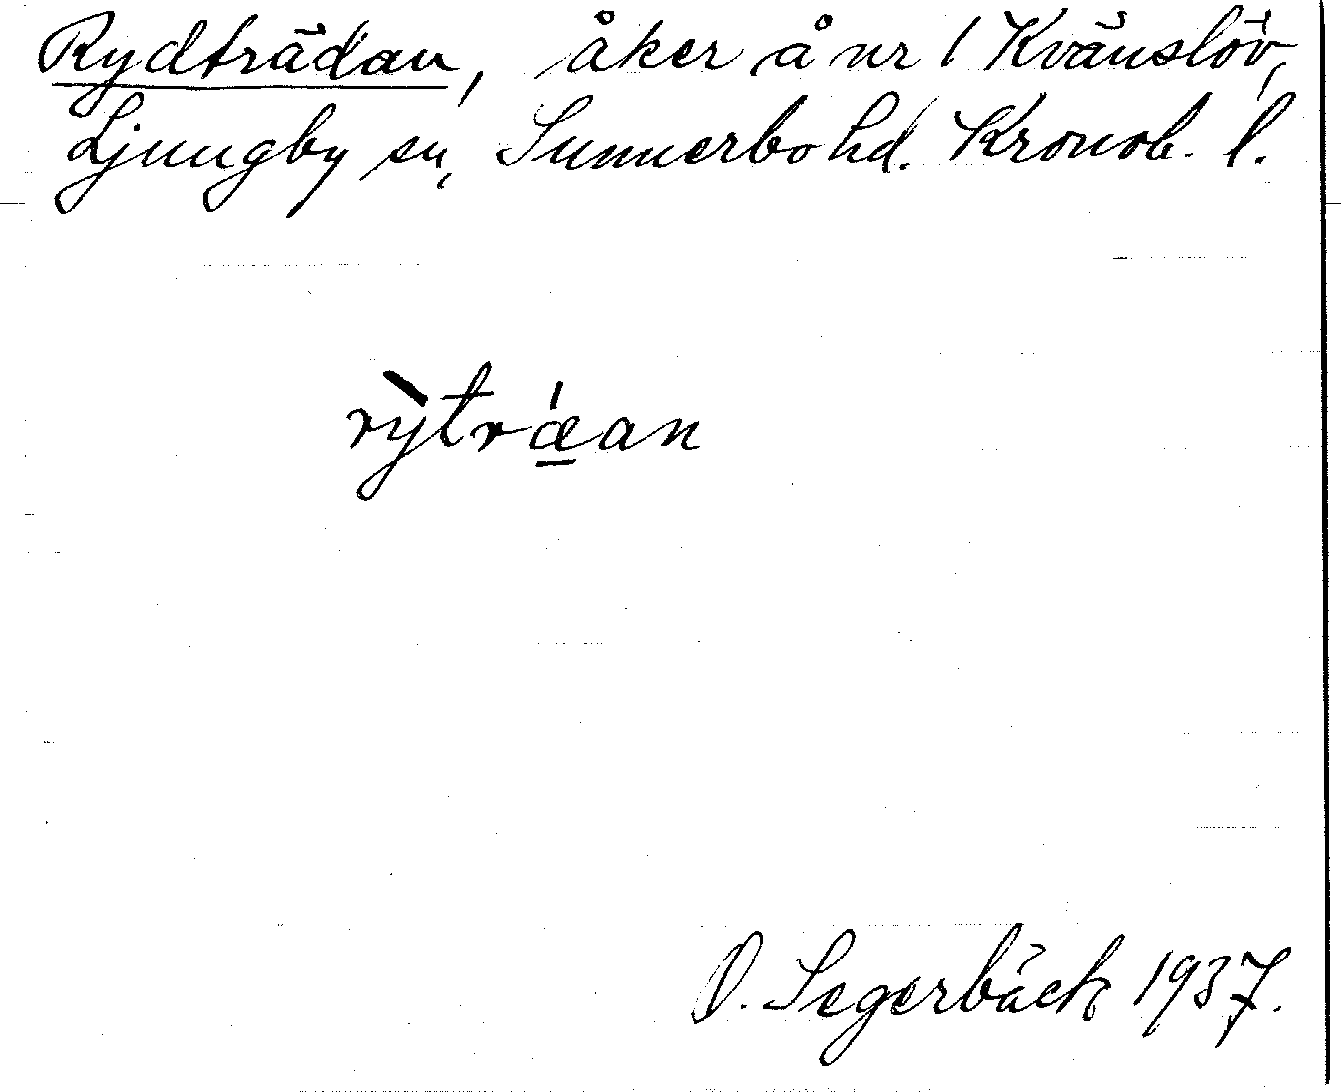 Rydträdan, åker å nr 1 Kvänslöv,
Ljungby sn, Sunnerbo hd. Kronob. l.
rỳtrǽ̱an
O. Segerbäck 1937.